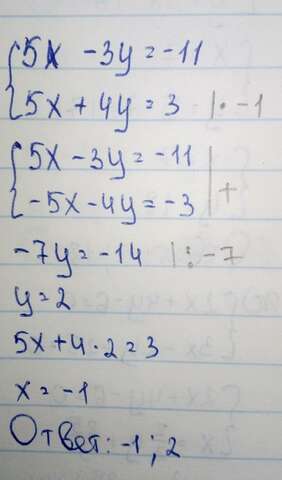 {5x - 3y = -11
{5x + 4y = 3 | · -1
{5x - 3y = -11 |
{-5x - 4y = -3 | +
-7y = -14 | : -7
y = 2
5x + 4 · 2 = 3
x = -1
Ответ: -1; 2